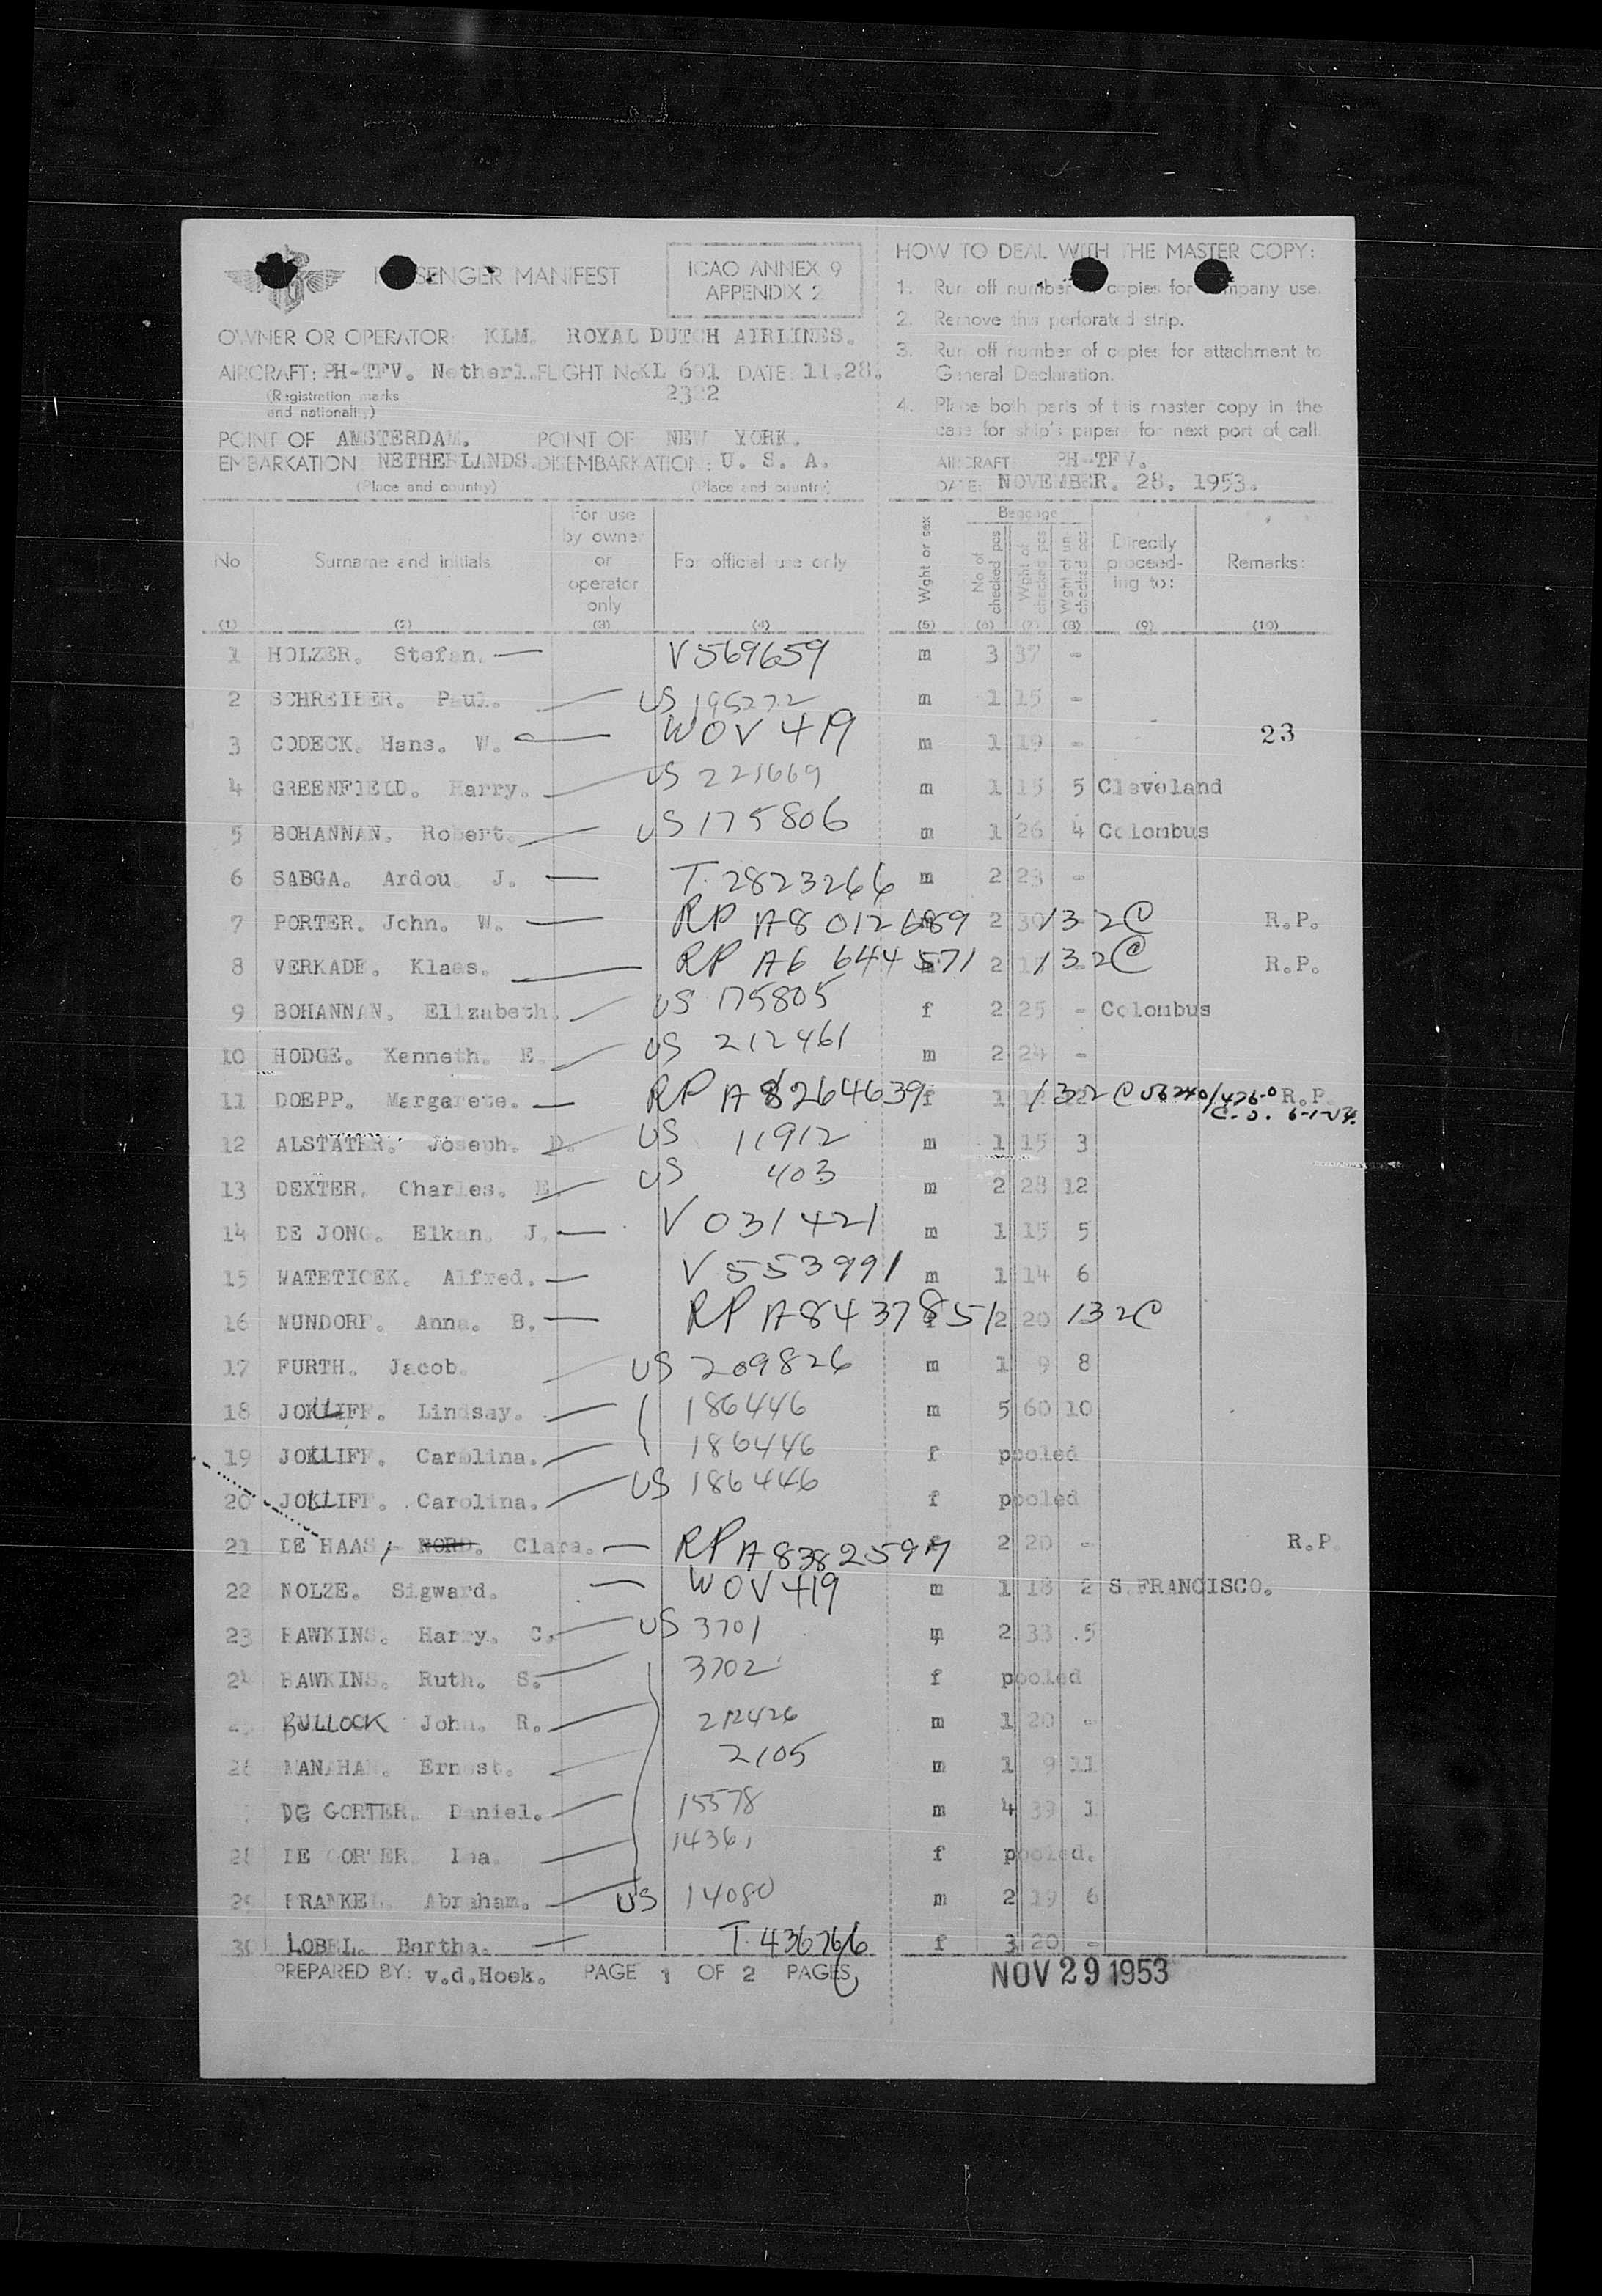 PASSENGER MANIFEST
ICAO ANNEX 9
APPENDIX 2
OWNER OR OPERATOR: KLM. ROYAL DUTCH AIRLINES.
AIRCRAFT: PH-TFV. Netherl. FLIGHT No KL 601 DATE: 11.28.
(Registration marks
and nationality)
2322
POINT OF AMSTERDAM. POINT OF NEW YORK.
EMBARKATION: NETHERLANDS. DISEMBARKATION: U. S. A.
(Place and country) (Place and country)
HOW TO DEAL WITH THE MASTER COPY:
1. Run off number of copies for company use.
2. Remove this perforated strip.
3. Run off number of copies for attachment to
General Declaration.
4. Place both parts of this master copy in the
case for ship's papers for next port of call
AIRCRAFT: PH-TFV.
DATE: NOVEMBER. 28. 1953.
No Surname and initials For use by owner or operator only For official use only Wght or sex Baggage No of checked pcs Wght of checked pcs Wght of un-checked pcs Directly proceed-ing to: Remarks:
(1) (2) (3) (4) (5) (6) (7) (8) (9) (10)
1 HOLZER. Stefan. — V 569659 m 3 37 -
2 SCHREIBER. Paul. US 195272 m 1 15 -
3 CODECK. Hans. W. WOV 419 m 1 19 - 23
4 GREENFIELD. Harry. US 221669 m 1 15 5 Cleveland
5 BOHANNAN. Robert. US 175806 m 1 26 4 Colombus
6 SABGA. Ardou J. — T. 2823266 m 2 23 -
7 PORTER. John. W. — RP A8 012689 2 30 132C R.P.
8 VERKADE. Klaas. — RP A6 644 571 2 132C R.P.
9 BOHANNAN. Elizabeth. US 175805 f 2 25 - Colombus
10 HODGE. Kenneth. E. US 212461 m 2 24 -
11 DOEPP. Margarete. — RP A 8264639 f 1 132 C R.P.
12 ALSTATER. Joseph. D. US 11912 m 1 15 3
13 DEXTER. Charles. E. US 403 m 2 28 12
14 DE JONG. Elkan. J. — V 031421 m 1 15 5
15 MATETICEK. Alfred. — V 553991 m 1 14 6
16 MUNDORF. Anna. B. — RP A8437851 2 20 132C
17 FURTH. Jacob. US 209826 m 1 9 8
18 JOLLIFF. Lindsay. 186446 m 5 60 10
19 JOLLIFF. Carolina. 186446 f pooled
20 JOLLIFF. Carolina. US 186446 f pooled
21 DE HAAS, - NORD. Clara. — RP A8382597 f 2 20 - R.P.
22 NOLZE. Sigward. — WOV 419 m 1 18 2 S. FRANCISCO.
23 HAWKINS. Harry. C. US 3701 m 2 33 .5
24 HAWKINS. Ruth. S. 3702 f pooled
BULLOCK John. R. 212426 m 1 20 -
26 MANAHAN. Ernest. 2105 m 1 9 11
DE GORTER. Daniel. 15578 m 4 39 1
28 DE GORTER. Ina. 14361 f pooled.
29 FRANKEL. Abraham. US 14080 m 2 19 6
30 LOBEL. Bertha. — T. 436766 f 3 20 -
PREPARED BY: v.d.Hoek. PAGE 1 OF 2 PAGES
NOV 29 1953